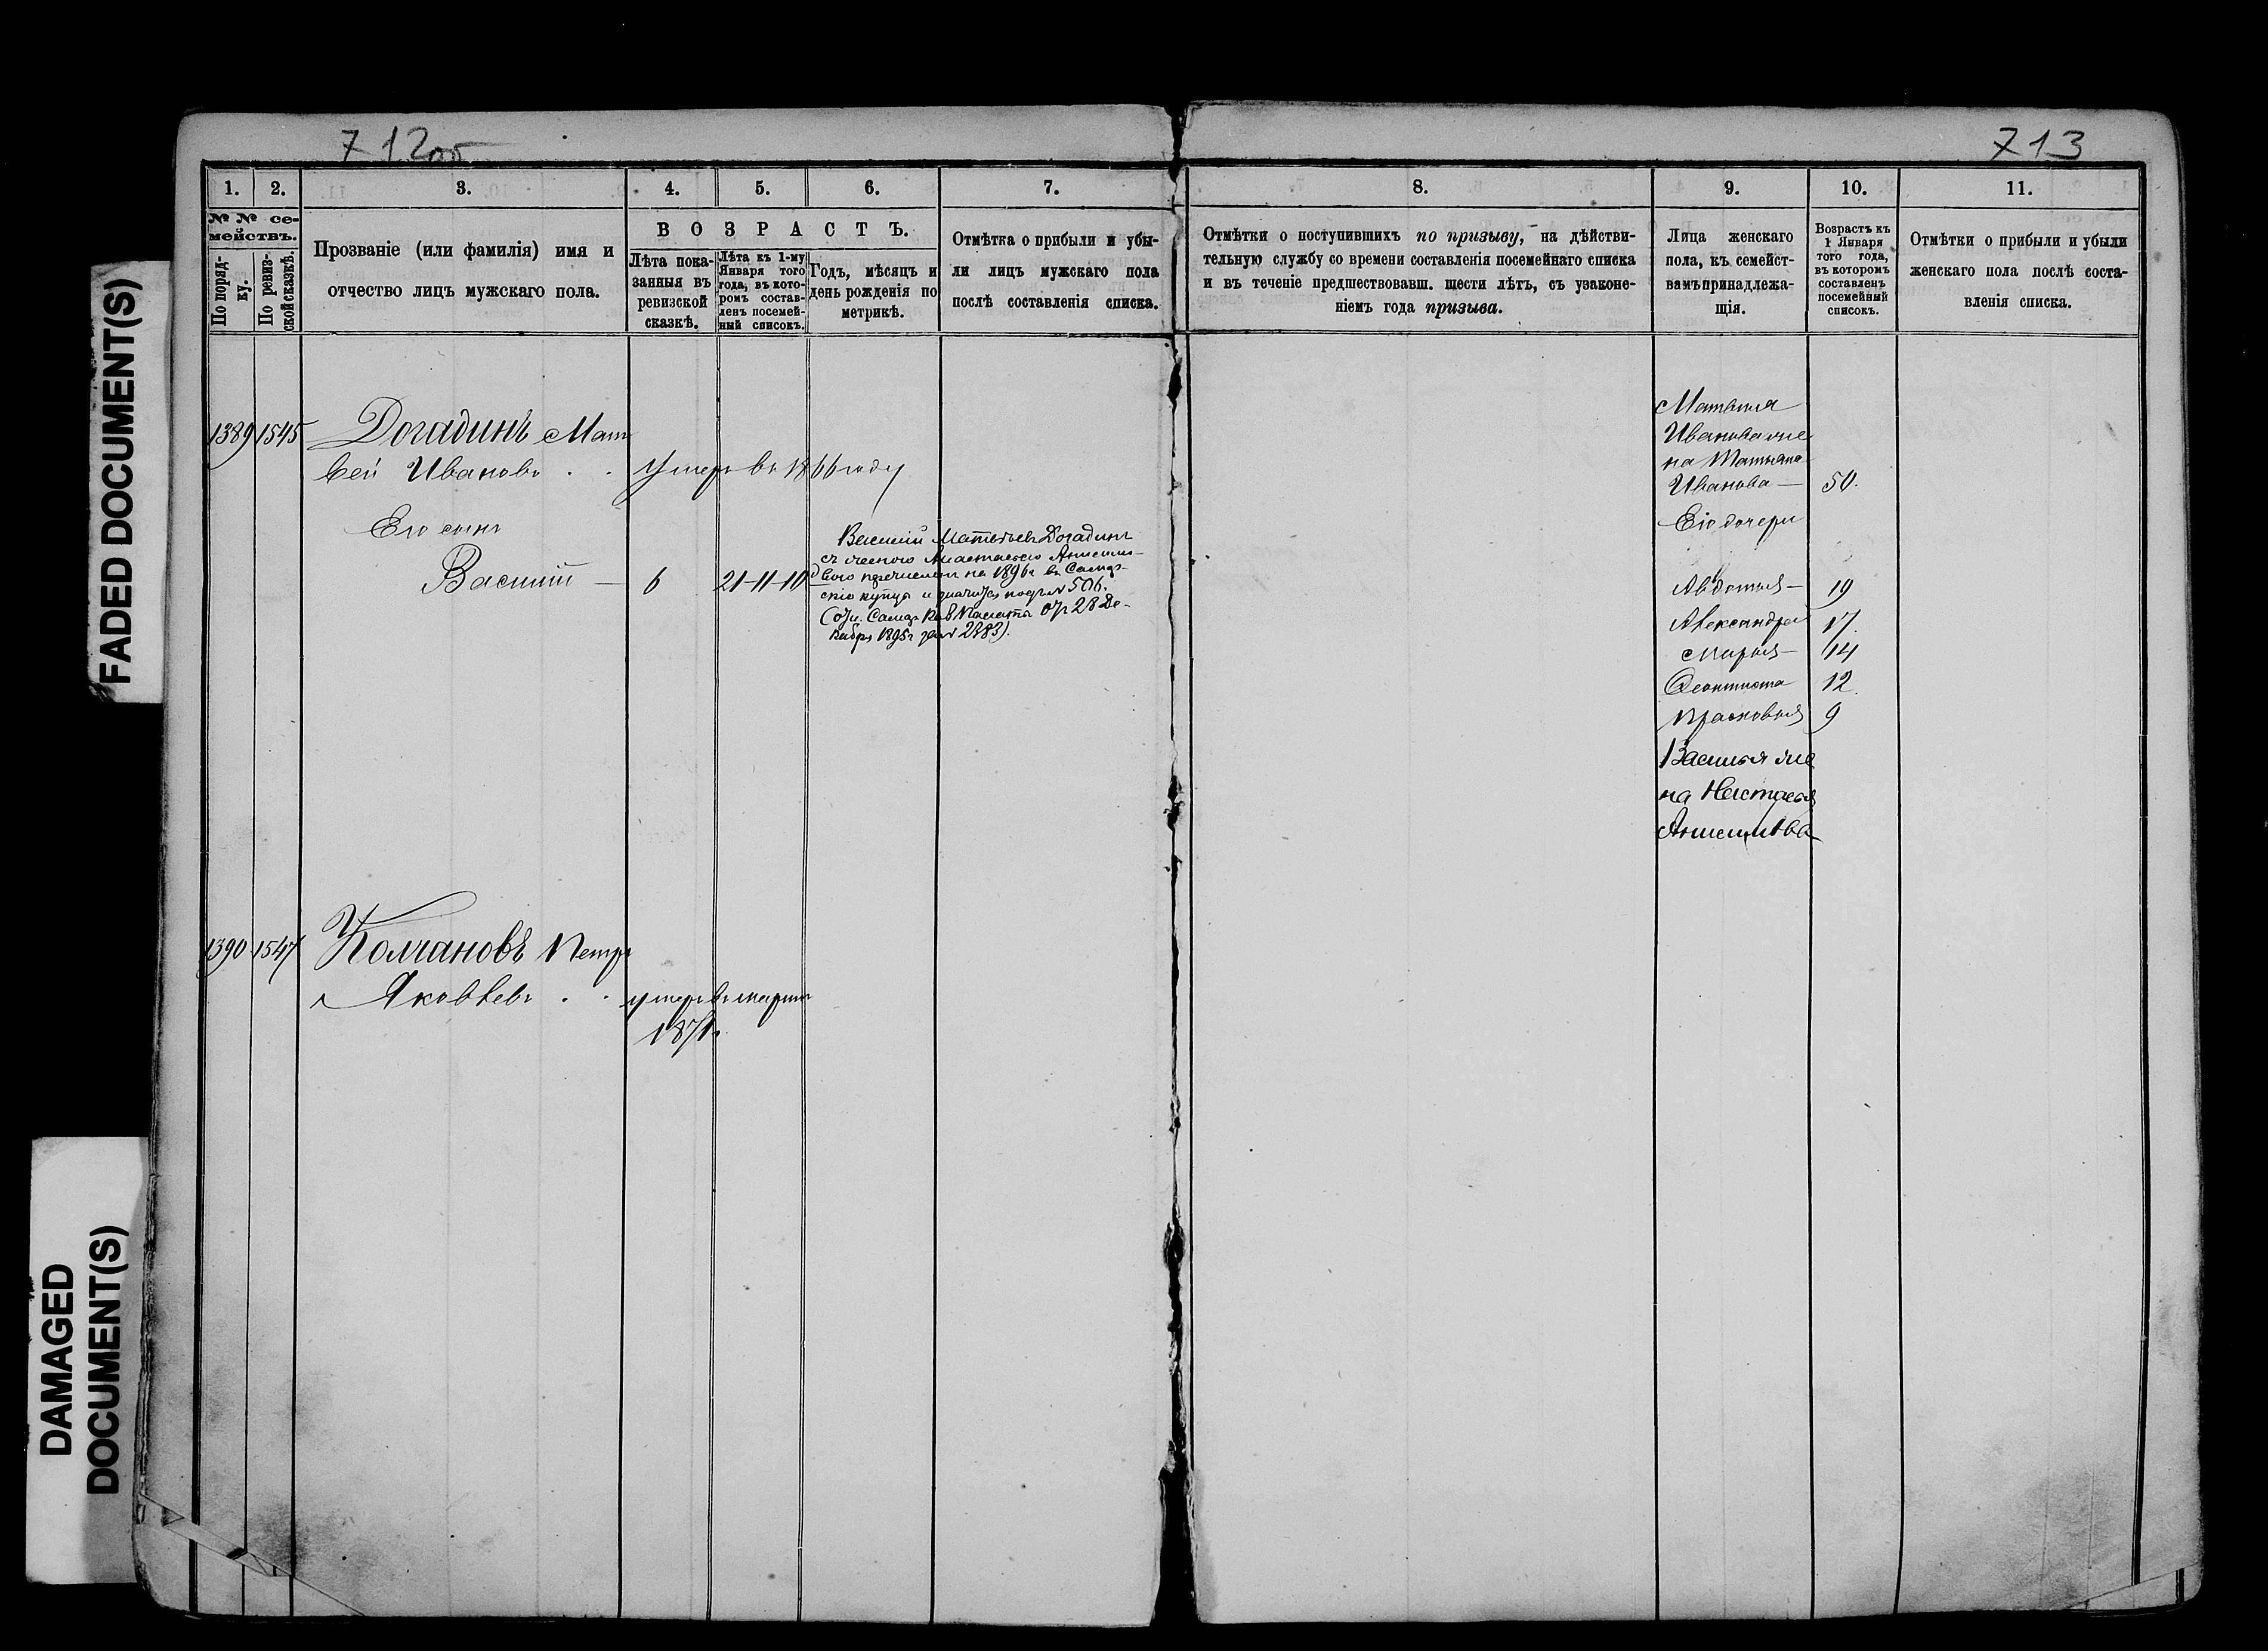 712об
713
1. 2. 3. 4. 5. 6. 7. 8. 9. 10. 11.
№ № се-
мействъ.
По поряд-
ку.
По ревиз-
ской сказкѣ.
Прозваніе (или фамилія) имя и
отчество лицъ мужскаго пола.
ВОЗРАСТЪ.
Лѣта пока-
занныя въ
ревизской
сказкѣ.
Лѣта къ 1-му
Января того
года, въ кото-
ромъ состав-
ленъ посемей-
ный списокъ.
Годъ, мѣсяцъ и
день рожденія по
метрикѣ.
Отмѣтка о прибыли и убы-
ли лицъ мужскаго пола
послѣ составленія списка.
Отмѣтки о поступившихъ по призыву, на дѣйстви-
тельную службу со времени составленія посемейнаго списка
и въ теченіе предшествовавш. шести лѣтъ, съ узаконе-
ніемъ года призыва.
Лица женскаго
пола, къ семейст-
вамъ принадлежа-
щія.
Возрастъ къ
1 Января
того года,
въ которомъ
составленъ
посемейный
списокъ.
Отмѣтки о прибыли и убыли
женскаго пола послѣ соста-
вленія списка.
1389 1545 Догадинъ Мат
вей Ивановъ . . Умеръ въ 1866 году
Его сынъ
Василій — 6 21-11-10
Василій Матвѣевъ Догадинъ
съ женою Анастасіею Анисимо-
вою перечисленъ на 1896 г въ Самар-
скіе купцы и значится подъ № 506.
(отн. Самар. Каз Палаты отъ 28 Де-
кабря 1895 г за № 2283).
Матвѣя
Иванова же
на Татьяна
Иванова — 50.
Его дочери
Авдотья — 19
Александра 17.
Марья — 14
Феоктиста 12.
Прасковья 9
Василья же
на Настасья
Анисимова
1390 1547 Колчановъ Петръ
Яковлевъ . . умеръ въ мартѣ
1871 г.
FADED DOCUMENT(S)
DAMAGED
DOCUMENT(S)